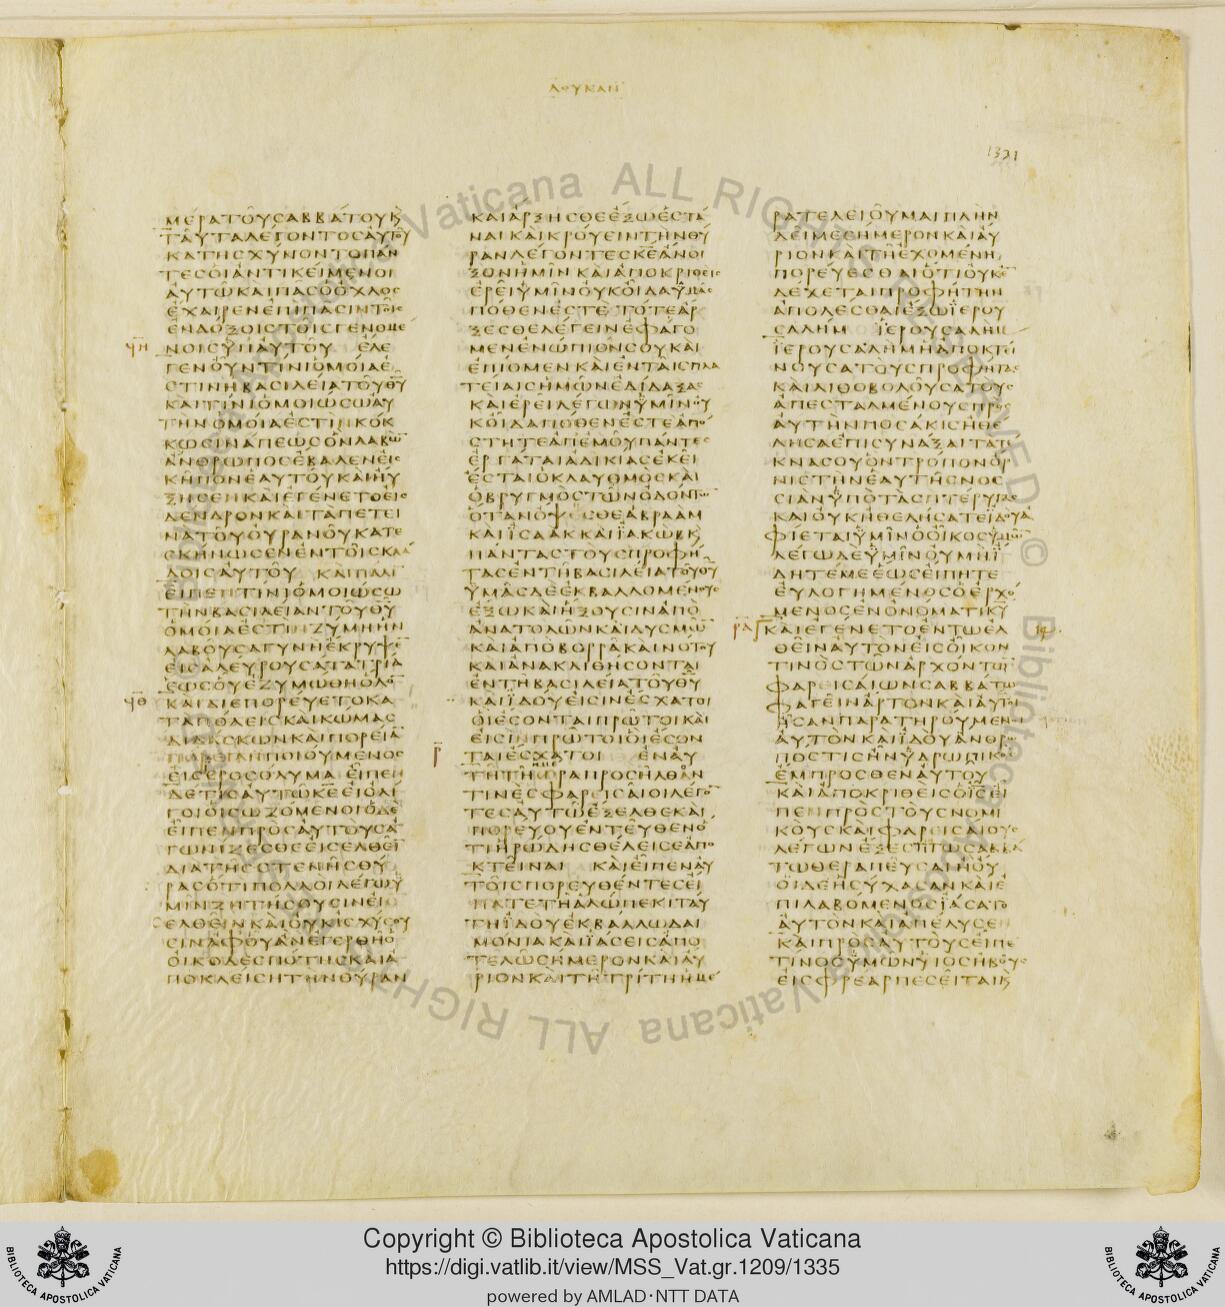 ΛΟΥΚΑΝ
1321
ΜΕΡΑ ΤΟΥ ΣΑΒΒΑΤΟΥ Κ
ΤΑΥΤΑ ΛΕΓΟΝΤΟΣ ΑΥΤΟΥ
ΚΑΤΗΣΧΥΝΟΝΤΟ ΠΑΝ
ΤΕΣ ΟΙ ΑΝΤΙΚΕΙΜΕΝΟΙ
ΑΥΤΩ ΚΑΙ ΠΑΣ Ο ΟΧΛΟΣ
ΕΧΑΙΡΕΝ ΕΠΙ ΠΑΣΙΝ ΤΟΙΣ
ΕΝΔΟΞΟΙΣ ΤΟΙΣ ΓΕΙΝΟΜΕ
ϞΗ
ΝΟΙΣ ΥΠ ΑΥΤΟΥ ΕΛΕ
ΓΕΝ ΟΥΝ ΤΙΝΙ ΟΜΟΙΑ Ε
ΣΤΙΝ Η ΒΑΣΙΛΕΙΑ ΤΟΥ ΘΥ
ΚΑΙ ΤΙΝΙ ΟΜΟΙΩΣΩ ΑΥ
ΤΗΝ ΟΜΟΙΑ ΕΣΤΙΝ ΚΟΚ
ΚΩ ΣΙΝΑΠΕΩΣ ΟΝ ΛΑΒΩ
ΑΝΘΡΩΠΟΣ ΕΒΑΛΕΝ ΕΙΣ
ΚΗΠΟΝ ΕΑΥΤΟΥ ΚΑΙ ΗΥ
ΞΗΣΕΝ ΚΑΙ ΕΓΕΝΕΤΟ ΕΙΣ
ΔΕΝΔΡΟΝ ΚΑΙ ΤΑ ΠΕΤΕΙ
ΝΑ ΤΟΥ ΟΥΡΑΝΟΥ ΚΑΤΕ
ΣΚΗΝΩΣΕΝ ΕΝ ΤΟΙΣ ΚΛΑ
ΔΟΙΣ ΑΥΤΟΥ ΚΑΙ ΠΑΛΙ
ΕΙΠΕΝ ΤΙΝΙ ΟΜΟΙΩΣΩ
ΤΗΝ ΒΑΣΙΛΕΙΑΝ ΤΟΥ ΘΥ
ΟΜΟΙΑ ΕΣΤΙΝ ΖΥΜΗ ΗΝ
ΛΑΒΟΥΣΑ ΓΥΝΗ ΕΚΡΥΨΕ
ΕΙΣ ΑΛΕΥΡΟΥ ΣΑΤΑ ΤΡΙΑ
ΕΩΣ ΟΥ ΕΖΥΜΩΘΗ ΟΛΟ
ϞΘ
ΚΑΙ ΔΙΕΠΟΡΕΥΕΤΟ ΚΑ
ΤΑ ΠΟΛΕΙΣ ΚΑΙ ΚΩΜΑΣ
ΔΙΔΑΣΚΩΝ ΚΑΙ ΠΟΡΕΙΑ
ΠΟΙΟΥΜΕΝΟΣ
ΕΙΣ ΙΕΡΟΣΟΛΥΜΑ ΕΙΠΕΝ
ΔΕ ΤΙΣ ΑΥΤΩ ΚΕ ΕΙ ΟΛΙ
ΓΟΙ ΟΙ ΣΩΖΟΜΕΝΟΙ Ο ΔΕ
ΕΙΠΕΝ ΠΡΟΣ ΑΥΤΟΥΣ Α
ΓΩΝΙΖΕΣΘΕ ΕΙΣΕΛΘΕΙ
ΔΙΑ ΤΗΣ ΣΤΕΝΗΣ ΘΥ
ΡΑΣ ΟΤΙ ΠΟΛΛΟΙ ΛΕΓΩ Υ
ΜΙΝ ΖΗΤΗΣΟΥΣΙΝ ΕΙΣ
ΕΛΘΕΙΝ ΚΑΙ ΟΥΚ ΙΣΧΥΣΟΥ
ΣΙΝ ΑΦ ΟΥ ΑΝ ΕΓΕΡΘΗ Ο
ΟΙΚΟΔΕΣΠΟΤΗΣ ΚΑΙ Α
ΠΟΚΛΕΙΣΗ ΤΗΝ ΘΥΡΑΝ
ΚΑΙ ΑΡΞΗΣΘΕ ΕΞΩ ΕΣΤΑ
ΝΑΙ ΚΑΙ ΚΡΟΥΕΙΝ ΤΗΝ ΘΥ
ΡΑΝ ΛΕΓΟΝΤΕΣ ΚΕ ΑΝΟΙ
ΞΟΝ ΗΜΙΝ ΚΑΙ ΑΠΟΚΡΙΘΕΙΣ
ΕΡΕΙ ΥΜΙΝ ΟΥΚ ΟΙΔΑ ΥΜΑΣ
ΠΟΘΕΝ ΕΣΤΕ ΤΟΤΕ ΑΡ
ΞΕΣΘΕ ΛΕΓΕΙΝ ΕΦΑΓΟ
ΜΕΝ ΕΝΩΠΙΟΝ ΣΟΥ ΚΑΙ
ΕΠΙΟΜΕΝ ΚΑΙ ΕΝ ΤΑΙΣ ΠΛΑ
ΤΕΙΑΙΣ ΗΜΩΝ ΕΔΙΔΑΞΑΣ
ΚΑΙ ΕΡΕΙ ΛΕΓΩΝ ΥΜΙΝ ΟΥ
Κ ΟΙΔΑ ΠΟΘΕΝ ΕΣΤΕ ΑΠΟ
ΣΤΗΤΕ ΑΠ ΕΜΟΥ ΠΑΝΤΕΣ
ΕΡΓΑΤΑΙ ΑΔΙΚΙΑΣ ΕΚΕΙ
ΕΣΤΑΙ Ο ΚΛΑΥΘΜΟΣ ΚΑΙ
Ο ΒΡΥΓΜΟΣ ΤΩΝ ΟΔΟΝΤΩ
ΟΤΑΝ ΟΨΕΣΘΕ ΑΒΡΑΑΜ
ΚΑΙ ΙΣΑΑΚ ΚΑΙ ΙΑΚΩΒ Κ
ΠΑΝΤΑΣ ΤΟΥΣ ΠΡΟΦΗ
ΤΑΣ ΕΝ ΤΗ ΒΑΣΙΛΕΙΑ ΤΟΥ ΘΥ
ΥΜΑΣ ΔΕ ΕΚΒΑΛΛΟΜΕΝΟΥΣ
ΕΞΩ ΚΑΙ ΗΞΟΥΣΙΝ ΑΠΟ
ΑΝΑΤΟΛΩΝ ΚΑΙ ΔΥΣΜΩ
ΚΑΙ ΑΠΟ ΒΟΡΡΑ ΚΑΙ ΝΟΤΟΥ
ΚΑΙ ΑΝΑΚΛΙΘΗΣΟΝΤΑΙ
ΕΝ ΤΗ ΒΑΣΙΛΕΙΑ ΤΟΥ ΘΥ
ΚΑΙ ΙΔΟΥ ΕΙΣΙΝ ΕΣΧΑΤΟΙ
ΟΙ ΕΣΟΝΤΑΙ ΠΡΩΤΟΙ ΚΑΙ
ΕΙΣΙΝ ΠΡΩΤΟΙ ΟΙ ΕΣΟΝ
Ρ
ΤΑΙ ΕΣΧΑΤΟΙ ΕΝ ΑΥ
ΤΗ ΤΗ ΩΡΑ ΠΡΟΣΗΛΘΑΝ
ΤΙΝΕΣ ΦΑΡΕΙΣΑΙΟΙ ΛΕΓΟ
ΤΕΣ ΑΥΤΩ ΕΞΕΛΘΕ ΚΑΙ
ΠΟΡΕΥΟΥ ΕΝΤΕΥΘΕΝ Ο
ΤΙ ΗΡΩΔΗΣ ΘΕΛΕΙ ΣΕ ΑΠΟ
ΚΤΕΙΝΑΙ ΚΑΙ ΕΙΠΕΝ ΑΥ
ΤΟΙΣ ΠΟΡΕΥΘΕΝΤΕΣ ΕΙ
ΠΑΤΕ ΤΗ ΑΛΩΠΕΚΙ ΤΑΥ
ΤΗ ΙΔΟΥ ΕΚΒΑΛΛΩ ΔΑΙ
ΜΟΝΙΑ ΚΑΙ ΙΑΣΕΙΣ ΑΠΟ
ΤΕΛΩ ΣΗΜΕΡΟΝ ΚΑΙ ΑΥ
ΡΙΟΝ ΚΑΙ ΤΗ ΤΡΙΤΗ ΗΜΕ
ΡΑ ΤΕΛΕΙΟΥΜΑΙ ΠΛΗΝ
ΔΕΙ ΜΕ ΣΗΜΕΡΟΝ ΚΑΙ ΑΥ
ΡΙΟΝ ΚΑΙ ΤΗ ΕΧΟΜΕΝΗ
ΠΟΡΕΥΕΣΘΑΙ ΟΤΙ ΟΥΚ ΕΝ
ΔΕΧΕΤΑΙ ΠΡΟΦΗΤΗΝ
ΑΠΟΛΕΣΘΑΙ ΕΞΩ ΙΕΡΟΥ
ΣΑΛΗΜ ΙΕΡΟΥΣΑΛΗΜ
ΙΕΡΟΥΣΑΛΗΜ Η ΑΠΟΚΤΕΙ
ΝΟΥΣΑ ΤΟΥΣ ΠΡΟΦΗΤΑΣ
ΚΑΙ ΛΙΘΟΒΟΛΟΥΣΑ ΤΟΥΣ
ΑΠΕΣΤΑΛΜΕΝΟΥΣ ΠΡΟΣ
ΑΥΤΗΝ ΠΟΣΑΚΙΣ ΗΘΕ
ΛΗΣΑ ΕΠΙΣΥΝΑΞΑΙ ΤΑ ΤΕ
ΚΝΑ ΣΟΥ ΟΝ ΤΡΟΠΟΝ ΟΡ
ΝΙΣ ΤΗΝ ΕΑΥΤΗΣ ΝΟΣ
ΣΙΑΝ ΥΠΟ ΤΑΣ ΠΤΕΡΥΓΑΣ
ΚΑΙ ΟΥΚ ΗΘΕΛΗΣΑΤΕ ΙΔΟΥ Α
ΦΙΕΤΑΙ ΥΜΙΝ Ο ΟΙΚΟΣ ΥΜΩΝ
ΛΕΓΩ ΔΕ ΥΜΙΝ ΟΥ ΜΗ Ι
ΔΗΤΕ ΜΕ ΕΩΣ ΕΙΠΗΤΕ
ΕΥΛΟΓΗΜΕΝΟΣ Ο ΕΡΧΟ
ΜΕΝΟΣ ΕΝ ΟΝΟΜΑΤΙ ΚΥ
ΡΑ
ΚΑΙ ΕΓΕΝΕΤΟ ΕΝ ΤΩ ΕΛ
ΘΕΙΝ ΑΥΤΟΝ ΕΙΣ ΟΙΚΟΝ
ΤΙΝΟΣ ΤΩΝ ΑΡΧΟΝΤΩ
ΦΑΡΕΙΣΑΙΩΝ ΣΑΒΒΑΤΩ
ΦΑΓΕΙΝ ΑΡΤΟΝ ΚΑΙ ΑΥΤΟΙ
ΗΣΑΝ ΠΑΡΑΤΗΡΟΥΜΕΝΟΙ
ΑΥΤΟΝ ΚΑΙ ΙΔΟΥ ΑΝΘΡΩ
ΠΟΣ ΤΙΣ ΗΝ ΥΔΡΩΠΙΚΟΣ
ΕΜΠΡΟΣΘΕΝ ΑΥΤΟΥ
ΚΑΙ ΑΠΟΚΡΙΘΕΙΣ Ο ΙΣ ΕΙ
ΠΕΝ ΠΡΟΣ ΤΟΥΣ ΝΟΜΙ
ΚΟΥΣ ΚΑΙ ΦΑΡΕΙΣΑΙΟΥΣ
ΛΕΓΩΝ ΕΞΕΣΤΙΝ ΤΩ ΣΑΒΒΑ
ΤΩ ΘΕΡΑΠΕΥΣΑΙ Η ΟΥ
ΟΙ ΔΕ ΗΣΥΧΑΣΑΝ ΚΑΙ Ε
ΠΙΛΑΒΟΜΕΝΟΣ ΙΑΣΑΤΟ
ΑΥΤΟΝ ΚΑΙ ΑΠΕΛΥΣΕΝ
ΚΑΙ ΠΡΟΣ ΑΥΤΟΥΣ ΕΙΠΕ
ΤΙΝΟΣ ΥΜΩΝ ΥΙΟΣ Η ΒΟΥΣ
ΕΙΣ ΦΡΕΑΡ ΠΕΣΕΙΤΑΙ Κ
Vaticana ALL RIGHTS RESERVED © Biblioteca Vaticana ALL RIGHTS
Copyright © Biblioteca Apostolica Vaticana
https://digi.vatlib.it/view/MSS_Vat.gr.1209/1335
powered by AMLAD·NTT DATA
BIBLIOTECA APOSTOLICA VATICANA
BIBLIOTECA APOSTOLICA VATICANA